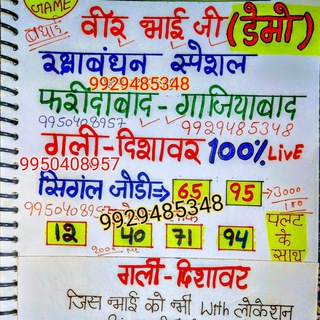 GAME
बधाई
वीर भाई जी (डेमो)
रक्षाबंधन स्पेशल
9929485348
फरीदाबाद - गाजियाबाद
9950408957 9929485348
गली - दिशावर 100% LivE
9950408957
सिगंल जोडी⇒ 65 95 →3000
9950408957
9929485348
पलट के साथ
12 40 71 94
गली - दिशावर
जिस भाई को भी With लोकेशन